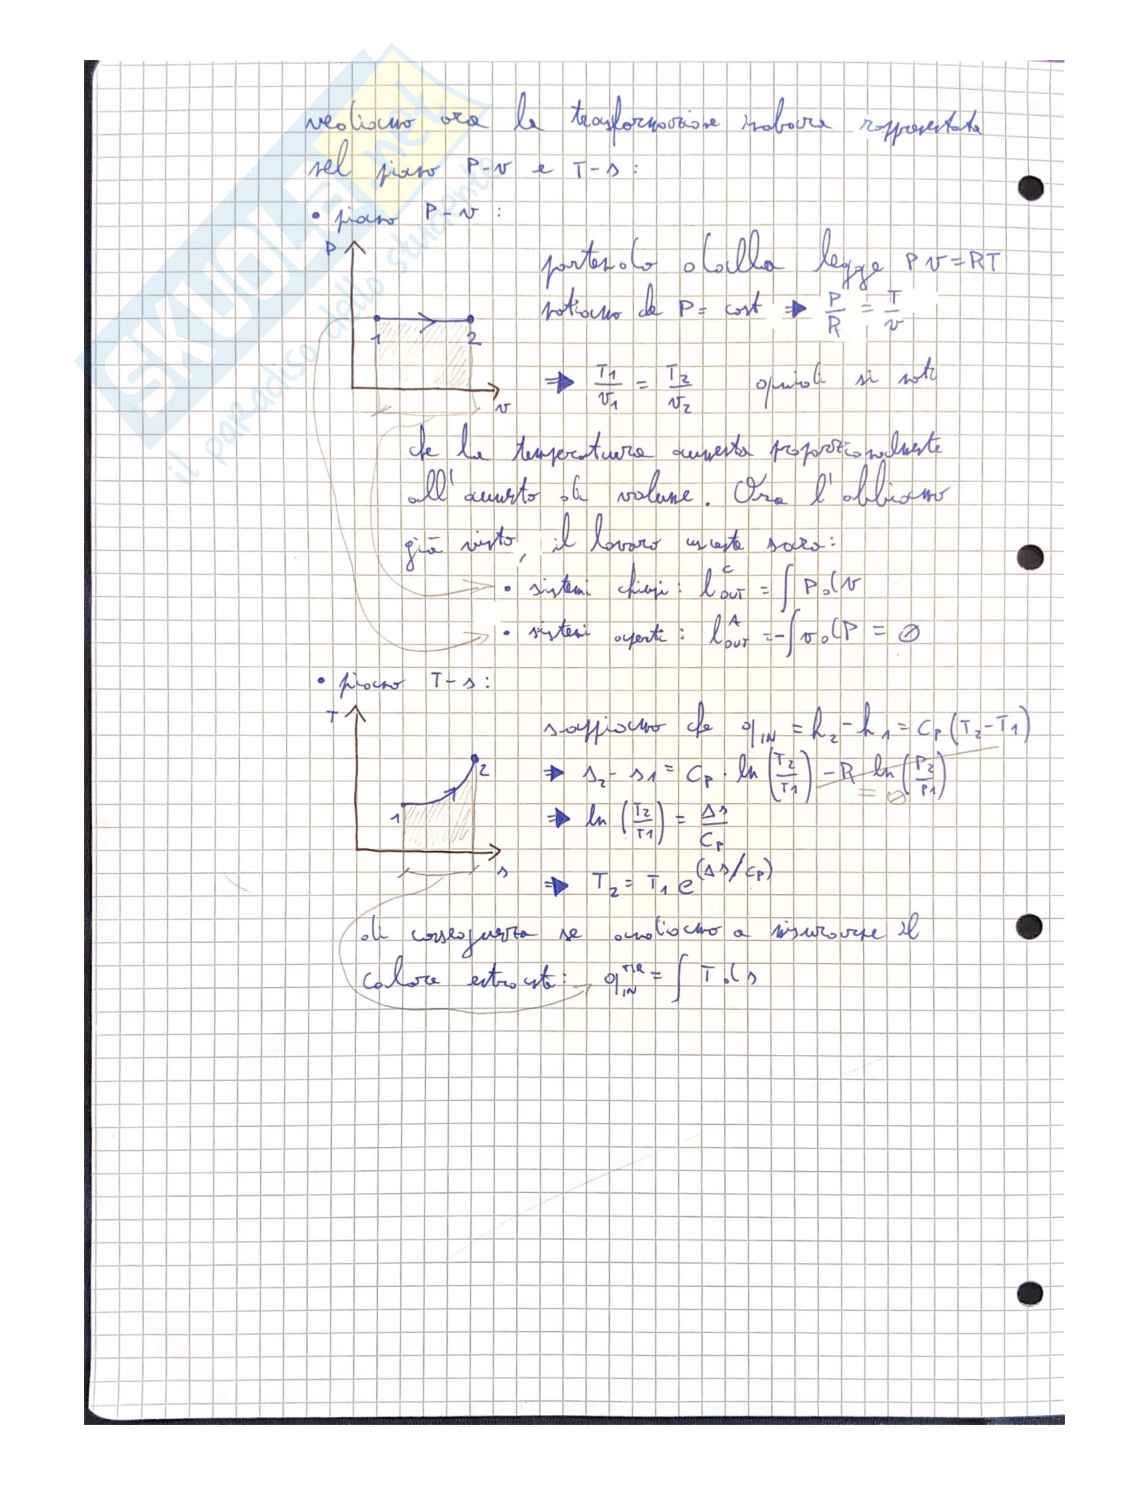 vediamo ora la trasformazione isobara rappresentata
nel piano P-v e T-s :
• piano P-v :
P
1
2
v
partendo dalla legge Pv=RT
notiamo che P= cost ⇒ P/R = T/v
⇒ T1/v1 = T2/v2 quindi si nota
che la temperatura aumenta proporzionalmente
all'aumento di volume. Ora l'abbiamo
già visto, il lavoro uscente sarà:
• sistemi chiusi: l^C_OUT = ∫ P dv
• sistemi aperti: l^A_OUT = -∫ v dP = 0
• piano T-s :
T
1
2
s
sappiamo che q_IN = h2-h1 = Cp (T2-T1)
⇒ s2-s1 = Cp · ln (T2/T1) - R ln (P2/P1)
= 0
⇒ ln (T2/T1) = Δs/Cp
⇒ T2 = T1 e^(Δs/Cp)
di conseguenza se andiamo a misurare il
calore : q_IN = ∫ T ds
SKUOLA.net
il paradiso dello studente